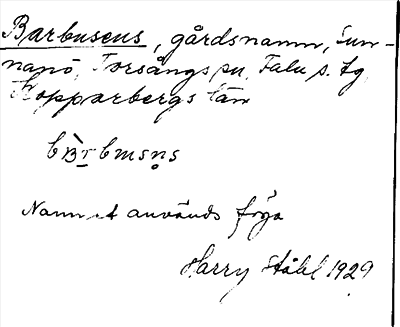 Barbusens, gårdsnamn, Sun-
nanö, Torsångs sn, Falu s. tg
Kopparbergs län
Namnet används
Harry Ståhl 1929